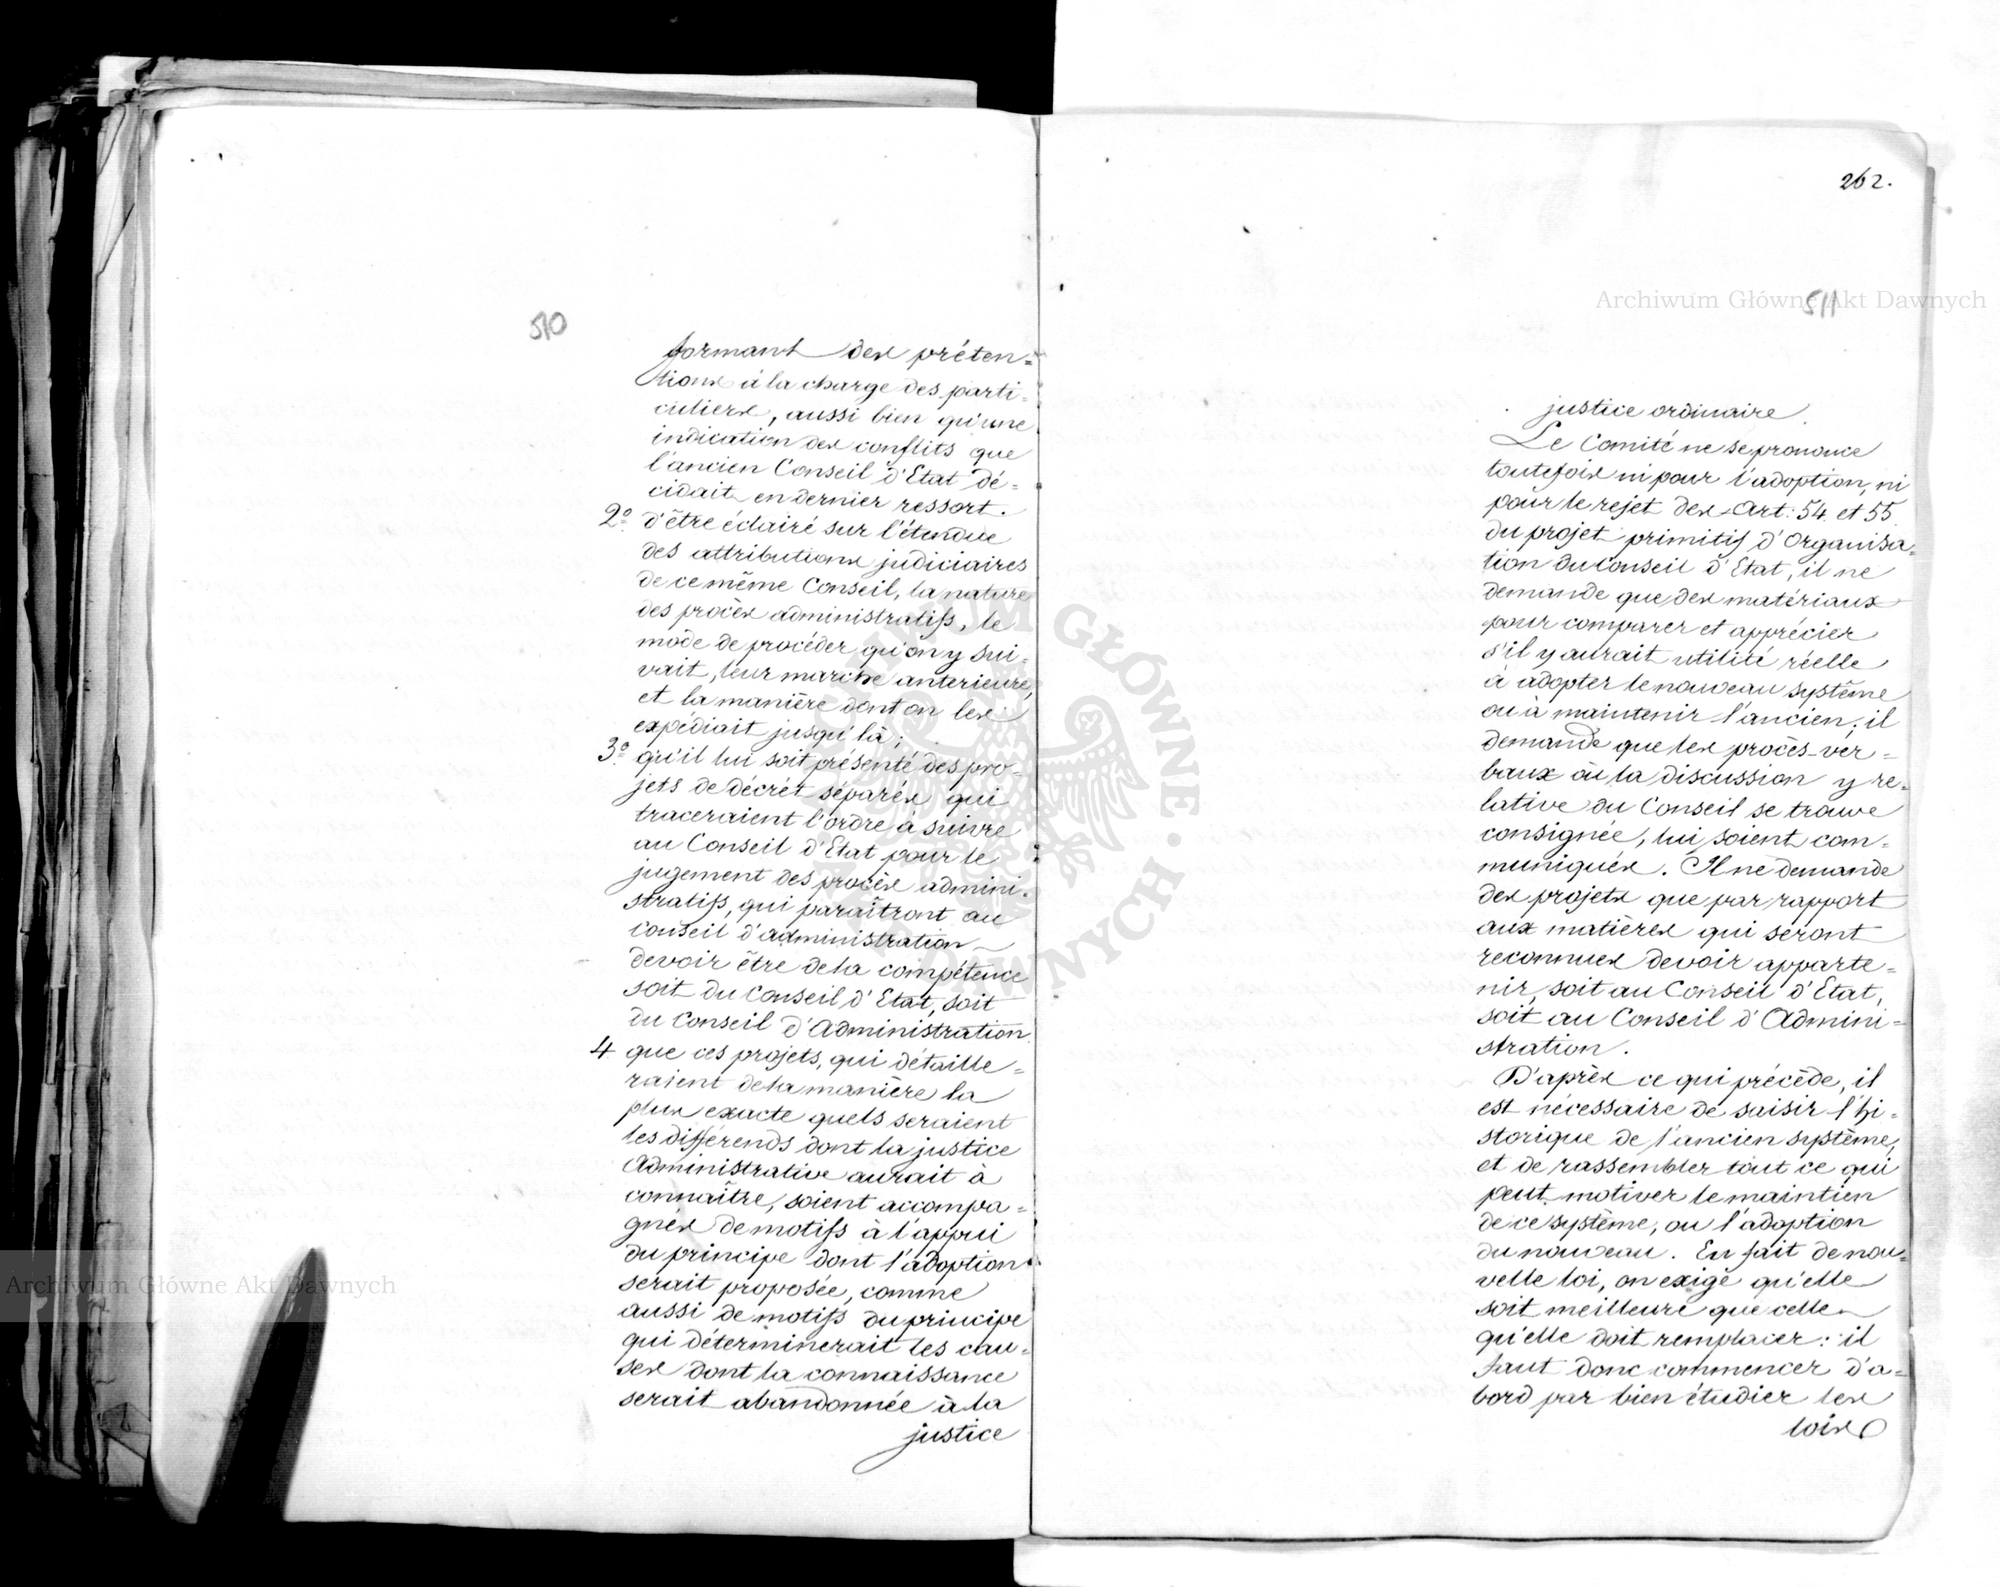 510
formant des préten=
tions à la charge des parti=
culiers, aussi bien qu'une
indication des conflits que
l'ancien Conseil d'Etat dé=
cidait en dernier ressort.
2o. d'être éclairé sur l'étendue
des attributions judiciaires
de ce même Conseil, la nature
des procès administratifs, le
mode de procéder qu'on y sui=
vait, leur marche anterieure,
et la manière dont on les
expédiait jusqu'là;
3o. qu'il lui soit présenté des pro=
jets de décrét séparés qui
traceraient l'ordre à suivre
au Conseil d'Etat pour le
jugement des procès admini=
stratifs, qui paraîtront au
Conseil d'administration
devoir être de la compétence
soit du Conseil d'Etat, soit
du Conseil d'Administration
4 que ces projets, qui détaille=
raient de la manière la
plus exacte quels seraient
les différends dont la justice
Administrative aurait à
connaître, soient accompa=
gnés de motifs à l'appui
du principe dont l'adoption
serait proposée, comme
aussi de motifs du principe
qui déterminerait les cau=
ses dont la connaissance
serait abandonnée à la
justice
262.
511
justice ordinaire.
Le Comité ne se prononce
toutefois ni pour l'adoption, ni
pour le rejet des Art. 54 et 55
du projet primitif d'Organisa=
tion du Conseil d'Etat, il ne
demande que des matériaux
pour comparer et apprécier
s'il y aurait utilité réelle
à adopter le nouveau système
ou à maintenir l'ancien; il
demande que les procès-ver=
baux où la discussion y re=
lative du Conseil se trouve
consignée, lui soient com=
muniqués. Il ne demande
des projets que par rapport
aux matières qui seront
reconnues devoir apparte=
nir, soit au Conseil d'Etat,
soit au Conseil d'Admini=
stration.
D'après ce qui précède, il
est nécessaire de saisir l'hi=
storique de l'ancien système,
et de rassembler tout ce qui
peut motiver le maintien
de ce système, ou l'adoption
du nouveau. En fait de nou=
velle loi, on exige qu'elle
soit meilleure que celle
qu'elle doit remplacer: il
faut donc commencer d'a=
bord par bien étudier les
lois
Archiwum Główne Akt Dawnych
Archiwum Główne Akt Dawnych
ARCHIWUM GŁÓWNE AKT DAWNYCH